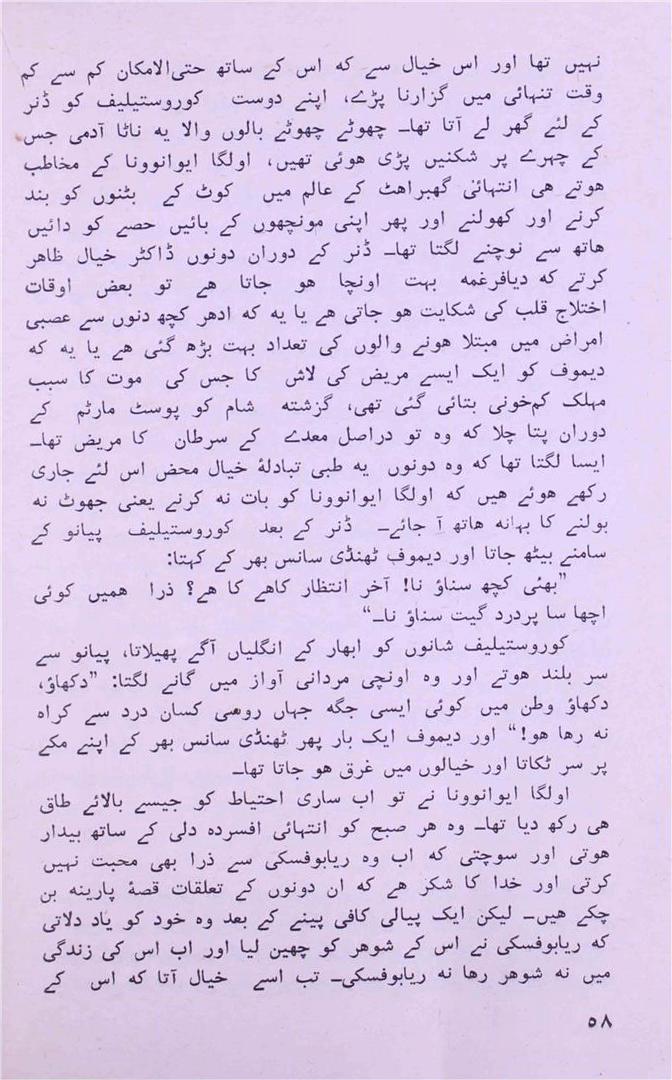 نہیں تھا اور اس خیال سے کہ اس کے ساتھ حتی‌الامکان کم سے کم
وقت تنہائی میں گزارنا پڑے، اپنے دوست کوروستیلیف کو ڈنر
کے لئے گھر لے آتا تھا۔ چھوٹے چھوٹے بالوں والا یہ ناٹا آدمی جس
کے چہرے پر شکنیں پڑی ہوئی تھیں، اولگا ایوانوونا کے مخاطب
ہوتے ہی انتہائی گھبراہٹ کے عالم میں کوٹ کے بٹنوں کو بند
کرنے اور کھولنے اور پھر اپنی مونچھوں کے بائیں حصے کو دائیں
ہاتھ سے نوچنے لگتا تھا۔ ڈنر کے دوران دونوں ڈاکٹر خیال ظاہر
کرتے کہ دیافرغمہ بہت اونچا ہو جاتا ہے تو بعض اوقات
اختلاج قلب کی شکایت ہو جاتی ہے یا یہ کہ ادھر کچھ دنوں سے عصبی
امراض میں مبتلا ہونے والوں کی تعداد بہت بڑھ گئی ہے یا یہ کہ
دیموف کو ایک ایسے مریض کی لاش کا جس کی موت کا سبب
مہلک کم‌خونی بتائی گئی تھی، گزشتہ شام کو پوسٹ مارٹم کے
دوران پتا چلا کہ وہ تو دراصل معدے کے سرطان کا مریض تھا۔
ایسا لگتا تھا کہ وہ دونوں یہ طبی تبادلۂ خیال محض اس لئے جاری
رکھے ہوئے ہیں کہ اولگا ایوانوونا کو بات نہ کرنے یعنی جھوٹ نہ
بولنے کا بہانہ ہاتھ آ جائے۔ ڈنر کے بعد کوروستیلیف پیانو کے
سامنے بیٹھ جاتا اور دیموف ٹھنڈی سانس بھر کے کہتا:
”بھئی کچھ سناؤ نا! آخر انتظار کاہے کا ہے؟ ذرا ہمیں کوئی
اچھا سا پردرد گیت سناؤ نا۔“
کوروستیلیف شانوں کو ابھار کے انگلیاں آگے پھیلاتا، پیانو سے
سر بلند ہوتے اور وہ اونچی مردانی آواز میں گانے لگتا: ”دکھاؤ،
دکھاؤ وطن میں کوئی ایسی جگہ جہاں روسی کسان درد سے کراہ
نہ رہا ہو!“ اور دیموف ایک بار پھر ٹھنڈی سانس بھر کے اپنے مکے
پر سر ٹکاتا اور خیالوں میں غرق ہو جاتا تھا۔
اولگا ایوانوونا نے تو اب ساری احتیاط کو جیسے بالائے طاق
ہی رکھ دیا تھا۔ وہ ہر صبح کو انتہائی افسردہ دلی کے ساتھ بیدار
ہوتی اور سوچتی کہ اب وہ ریابوفسکی سے ذرا بھی محبت نہیں
کرتی اور خدا کا شکر ہے کہ ان دونوں کے تعلقات قصۂ پارینہ بن
چکے ہیں۔ لیکن ایک پیالی کافی پینے کے بعد وہ خود کو یاد دلاتی
کہ ریابوفسکی نے اس کے شوہر کو چھین لیا اور اب اس کی زندگی
میں نہ شوہر رہا نہ ریابوفسکی۔ تب اسے خیال آتا کہ اس کے
۵۸